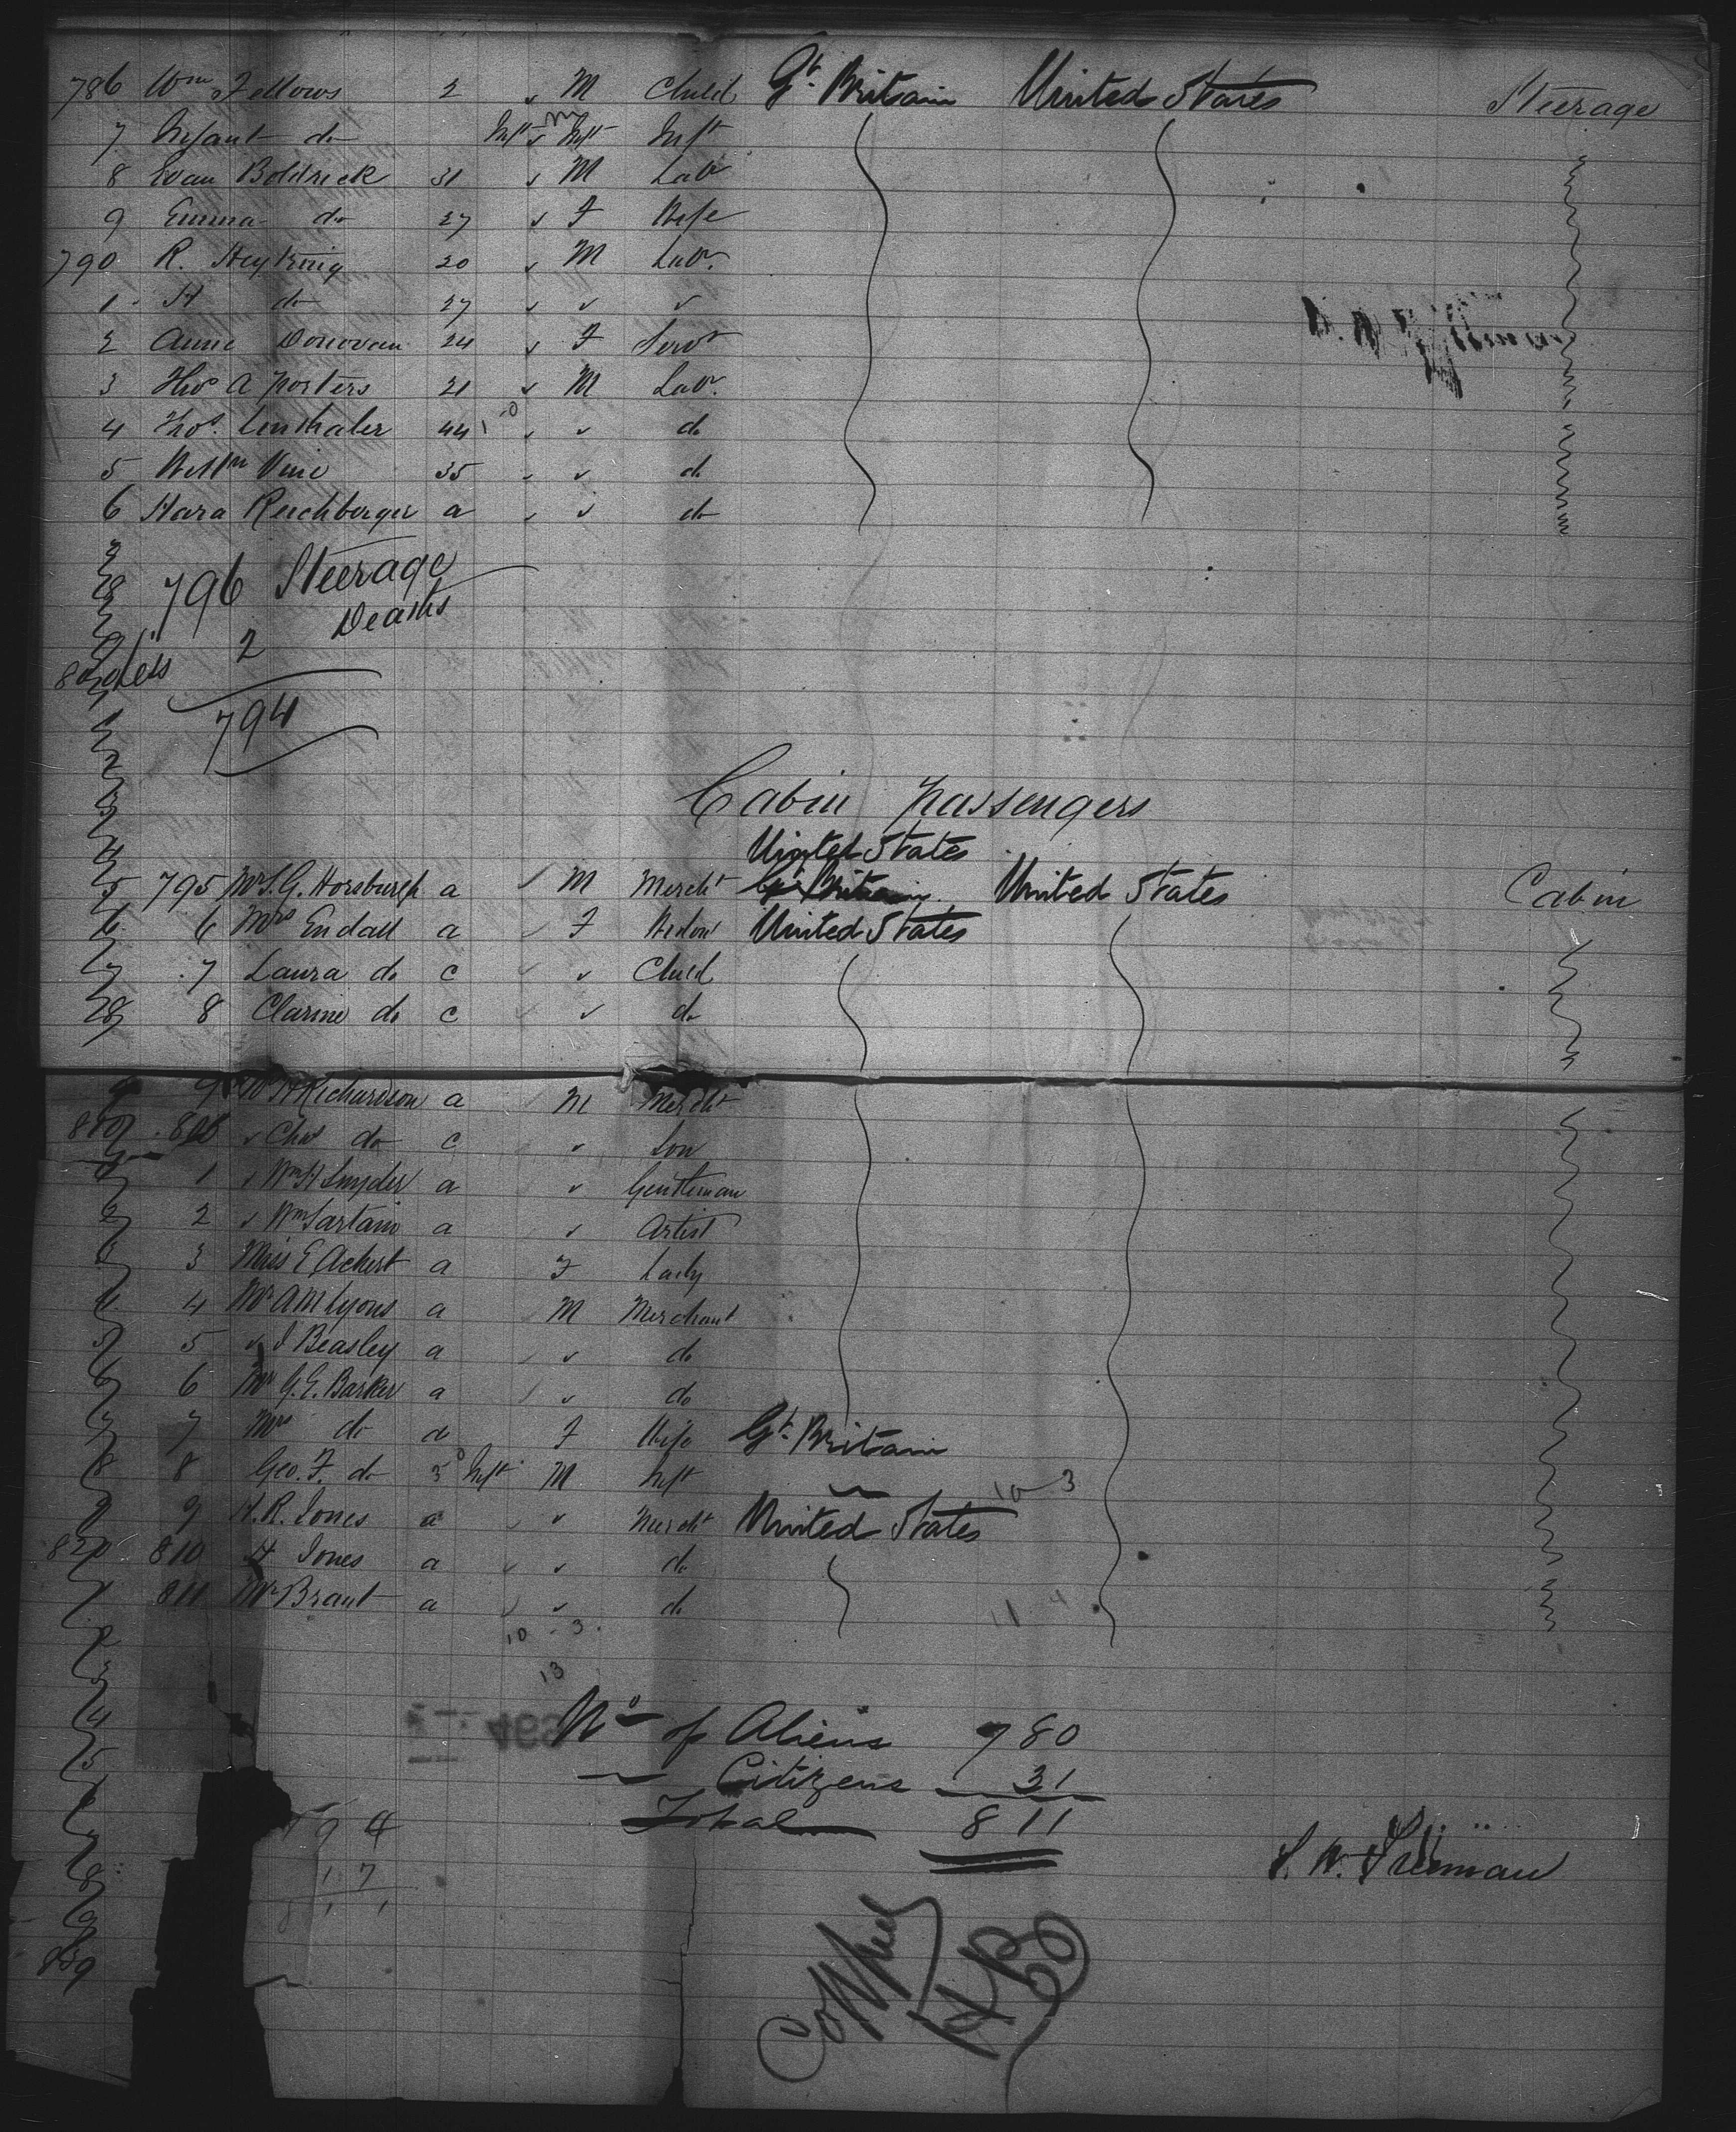 786 Wm Fellows 2 " M Child Gt. Britain United States Steerage
7 Infant do Inft " M Inft Inft
8 Evan Boldrick 31 " M Labr
9 Emma do 27 " F Wife
790 R. Heykring 20 " M Labr.
1 H do 27 " " "
2 Anne Donovan 24 " F Servt
3 Thos A Porters 21 " M Labr.
4 Thos. Linthaler 44 " " do
5 Willm Vine 35 " " do
6 Hara Reichberger a " " do
796 Steerage
Deaths
less 2
794
Cabin Passengers
United States
5 795 Mr S.G. Horsburgh a " M Mercht Gt Britain United States Cabin
6 6 Mrs Endall a " F Widow United States
7 7 Laura do c " " Child
8 8 Clarine do c " " do
9 9 W H Richardson a M Mercht
810 800 " Chas do c " Son
1 1 " Wm H Snyder a " Gentleman
2 2 " Wm Sartain a " Artist
3 3 Miss E Ackert a F Lady
4 4 Mr A M Lyons a M Merchant
5 5 " J Beasley a " do
6 6 Mr G.E. Barker a " do
7 7 Mrs do a F Wife Gt. Britain
8 8 Geo. F. do 3 Inft M Inft "
10 3
9 9 H.R. Jones a " " Mercht United States
820 810 H Jones a " " do
1 811 Mr Brant a " " do
10 - 3.
11 4
13
No of Aliens 780
" Citizens 31
Total 811
794
17
811
S. W. Freeman
Copied
HB
829